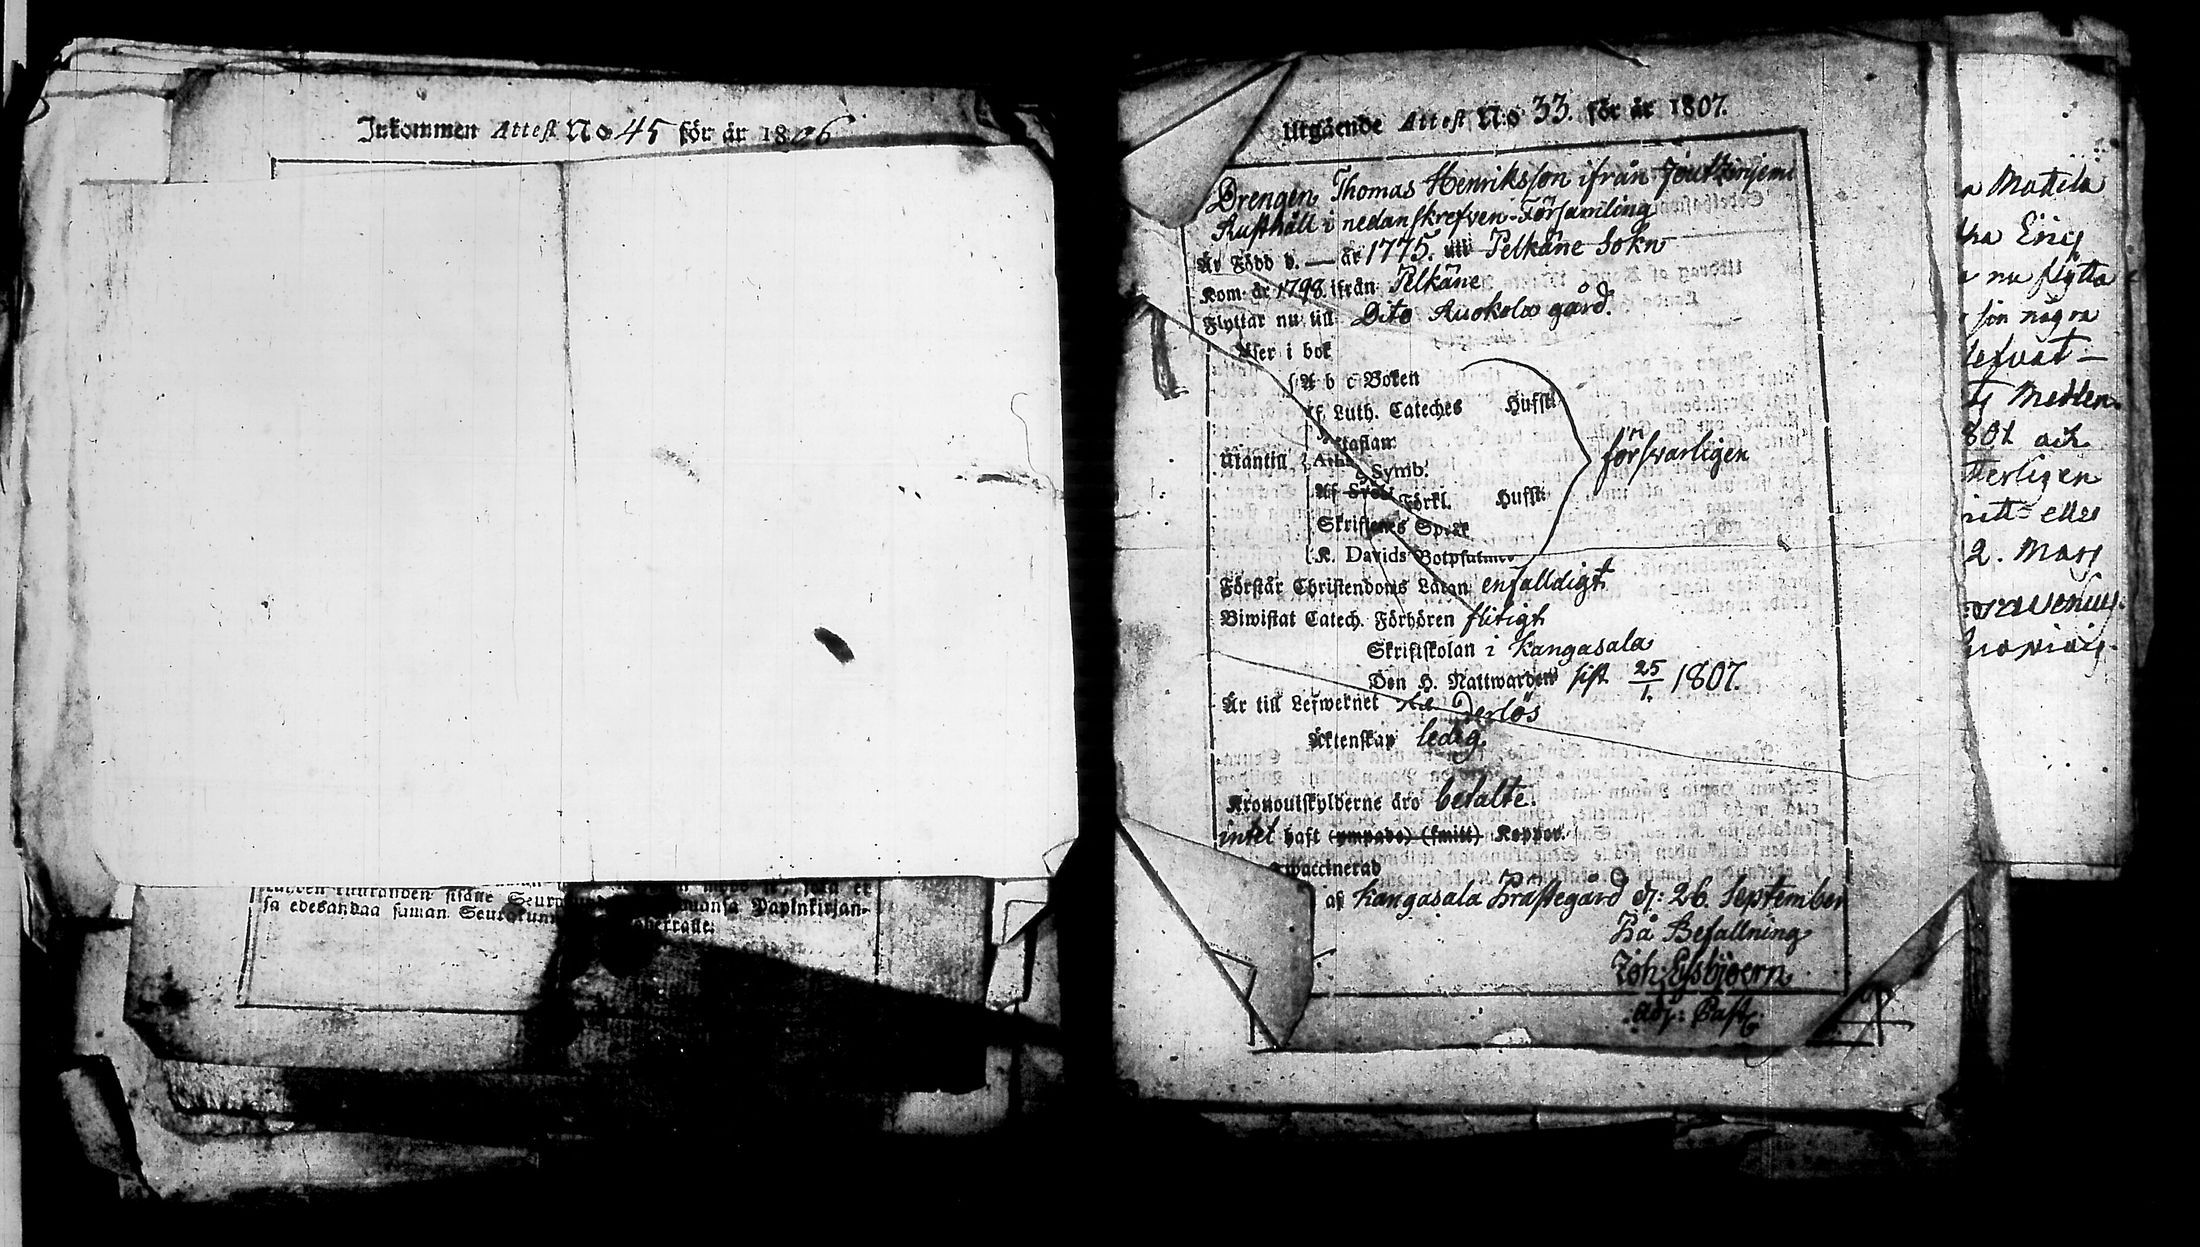 Inkommen Attest No 45 för år 1806
sa edesandaa suman Seurakun
Utgående Attest N:o 33. för år 1807.
Drengen Thomas Henriksson ifrån
Rusthåll i nedanskrefven Församling
Är Född d. — år 1775. uti Pelkäne Sokn
Kom år 1798 ifrån Pelkäne
Flyttar nu till Dito Ruokola gård.
Läser i bok
A b c Boken
f. Luth. Cateches Hufst:
Taflan
Utantill Symb.
försvarligen
Förkl. Hufst:
Skriftenes Språk
K. Davids Botpsalmer
Förstår Christendoms Läran enfalldigt
Biwistat Catech. Förhören flitigt
Skriftskolan i Kangasala
Den H. Nattwarden sist 25/1. 1807.
Är till Lefwernet
Äktenskap ledig.
Kronoutskylderne äro betalte.
intet haft (ympade) (smitt) Koppor.
waccinerad
af Kangasala Prästegård d: 26. September
På Befallning
Joh: Elsbjoern
Adj: Past:
a Mattila
tha Erij
a nu flytta
son några
lefvat –
ty Medlen
801 och
terligen
ritt= eller
2. Marj